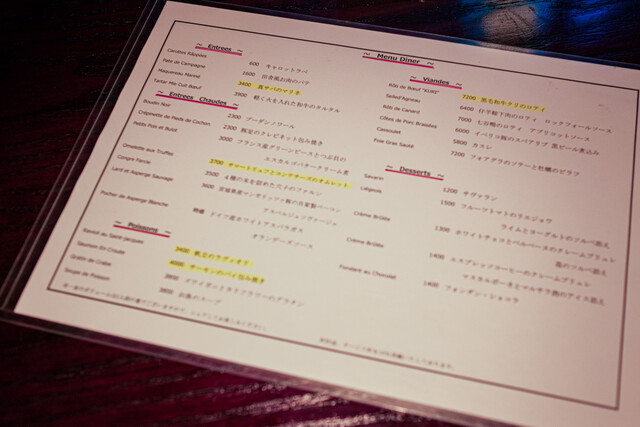 ～ Menu Diner ～
～ Entrees ～
Carottes Râpées 600 キャロットラペ
Pate de Campagne 1600 田舎風お肉のパテ
Maquereau Mariné 2400 真サバのマリネ
Tartar Mie Cuit Bœuf 2800 軽く火を入れた和牛のタルタル
～ Entrees Chaudes ～
Boudin Noir 2300 ブーダンノワール
Crépinette de Pieds de Cochon 2300 豚足のクレピネット包み焼き
Petits Pois et Bulot 3000 フランス産グリーンピースとつぶ貝の
エスカルゴバタークリーム煮
Omelette aux Truffes 2700 サマートリュフとコンテチーズのオムレット
Congre Farcie 3500
Lard et Asperge Sauvage 3600
アスペルジュソヴァージュ
Pocher de Asperge Blanche 時価 ドイツ産ホワイトアスパラガス
オランデーズソース
～ Poissons ～
Ravioli au Saint-jacques 3400 帆立のラヴィオリ
Saumon En Croute 4000 サーモンのパイ包み焼き
Gratin de Crabe 3800 ズワイガニとカリフラワーのグラタン
Soupe de Poisson 2800 お魚のスープ
～ Viandes ～
Rôti de Boeuf "KURI" 7200 黒毛和牛クリのロティ
Selled Agneau 6400 仔羊鞍下肉のロティ ロックフォールソース
Rôti de Canard 7000 七谷鴨のロティ アプリコットソース
Côtes de Porc Braisées 6000 イベリコ豚のスペアリブ 黒ビール煮込み
Cassoulet 5800 カスレ
Foie Gras Sauté 7200 フォアグラのソテーと牡蠣のピラフ
～ Desserts ～
Savarin 1200 サヴァラン
Liégeois 1500 フルーツトマトのリエジョワ
ライムとヨーグルトのソルベ添え
Crème Brûlée 1300 ホワイトチョコとバルベーヌのクレームブリュレ
塩のソルベ添え
Crème Brûlée 1400 エスプレッソコーヒーのクレームブリュレ
マスカルポーネとマルサラ酒のアイス添え
Fondant au Chocolat 1400 フォンダン・ショコラ